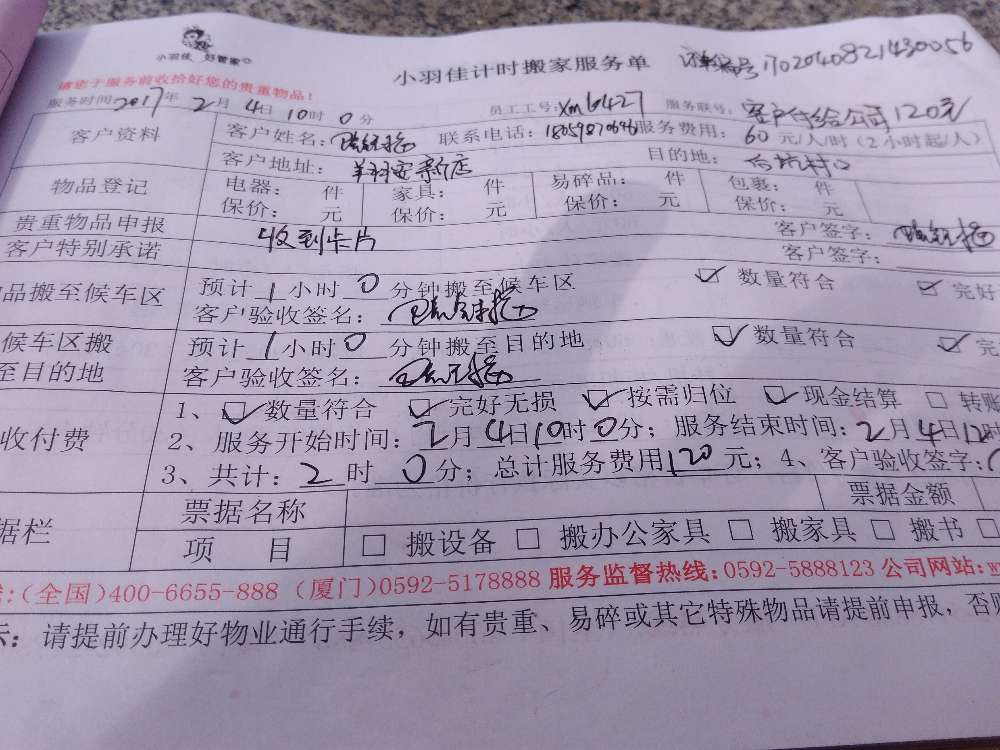 小羽佳 好管家
小羽佳计时搬家服务单 订单编号 1702040821430056
请您于服务前收拾好您的贵重物品！
服务时间2017年2月4日10时0分 员工工号：xm61427 服务账号：客户付给公司120元
客户资料 客户姓名： 联系电话：18059070696 服务费用：60元/人/时（2小时起/人）
客户地址： 目的地：
物品登记 电器： 件 家具： 件 易碎品： 件 包裹： 件
保价： 元 保价： 元 保价： 元 保价： 元
贵重物品申报 收到卡片 客户签字：
客户特别承诺 客户签字：
品搬至候车区 预计1小时0分钟搬至候车区 ☑ 数量符合 ☑ 完好
客户验收签名：
候车区搬至目的地 预计1小时0分钟搬至目的地 ☑ 数量符合 ☑ 完
客户验收签名：
收付费 1、☑ 数量符合 ☑ 完好无损 ☑ 按需归位 ☑ 现金结算 □ 转账
2、服务开始时间：2月4日10时0分；服务结束时间：2月4日12时
3、共计：2时0分；总计服务费用120元；4、客户验收签字：
据栏 票据名称 票据金额
项 目 □ 搬设备 □ 搬办公家具 □ 搬家具 □ 搬书 □
：(全国)400-6655-888 (厦门)0592-5178888 服务监督热线：0592-5888123 公司网站：w
示：请提前办理好物业通行手续，如有贵重、易碎或其它特殊物品请提前申报，否则